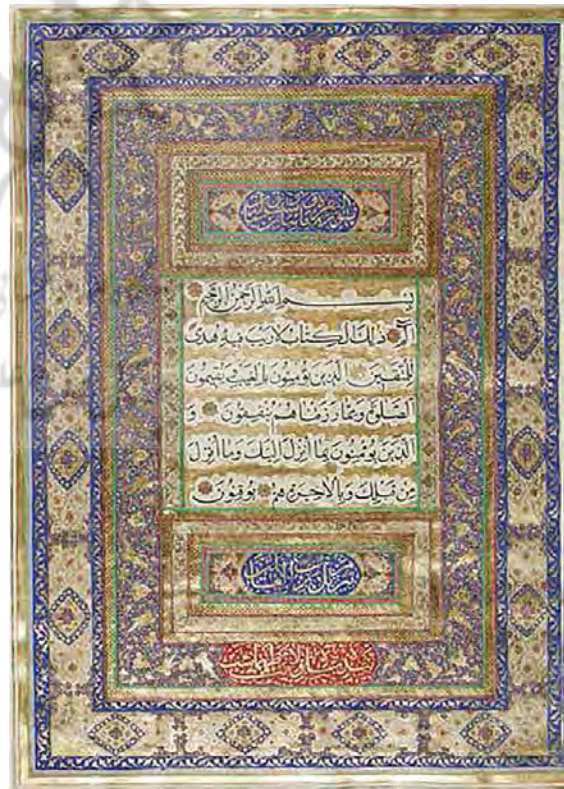 بِسْمِ اللهِ الرَّحْمٰنِ الرَّحِيمِ
الٓمٓ ذٰلِكَ الْكِتَابُ لَا رَيْبَ فِيهِ هُدًى
لِلْمُتَّقِينَ الَّذِينَ يُؤْمِنُونَ بِالْغَيْبِ وَيُقِيمُونَ
الصَّلٰوةَ وَمِمَّا رَزَقْنَاهُمْ يُنْفِقُونَ وَ
الَّذِينَ يُؤْمِنُونَ بِمَا أُنْزِلَ إِلَيْكَ وَمَا أُنْزِلَ
مِنْ قَبْلِكَ وَبِالْآخِرَةِ هُمْ يُوقِنُونَ